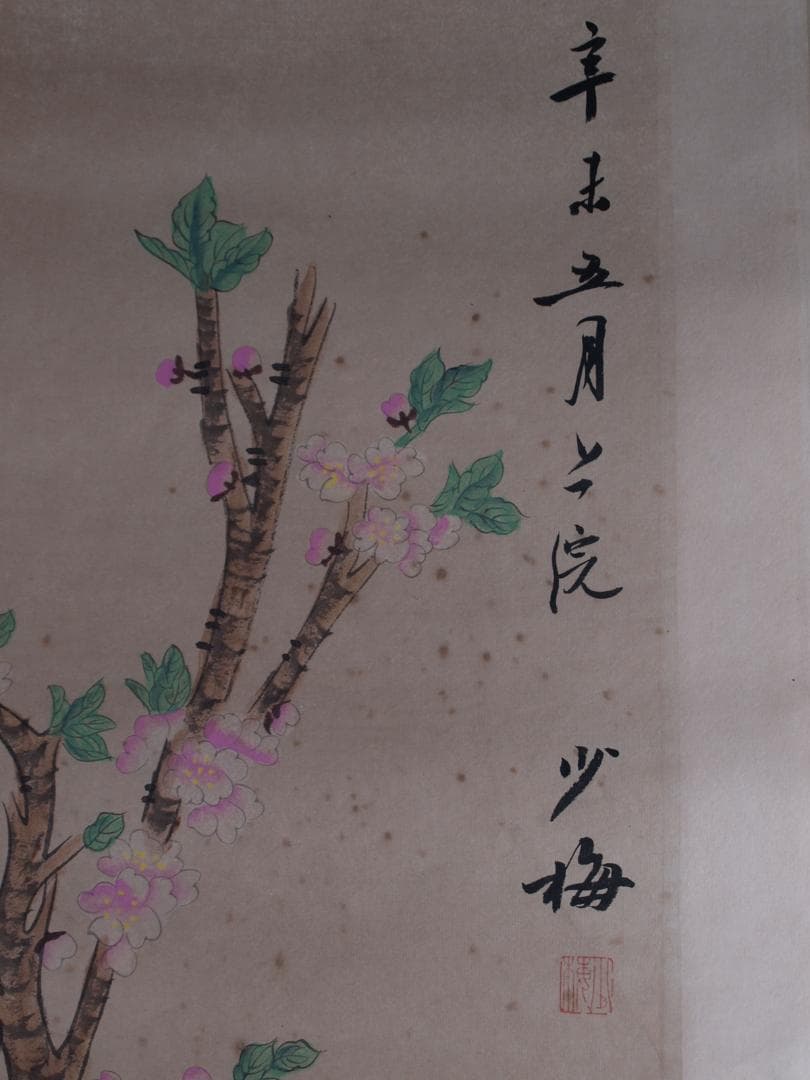 辛未五月上浣
少梅
少梅